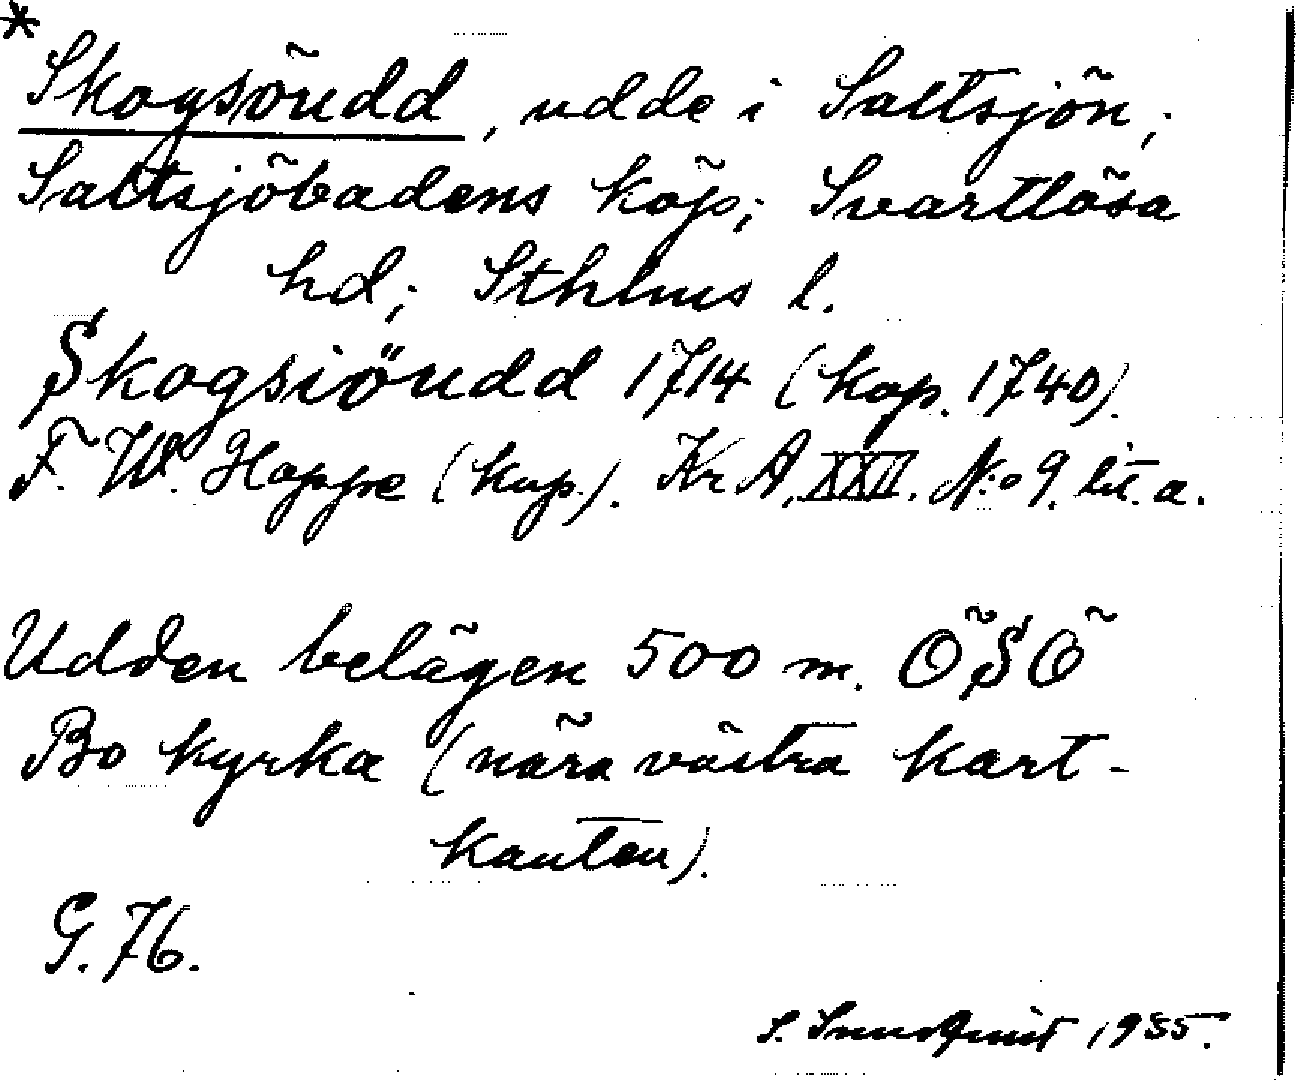 *
Skogsöudd, udde i Saltsjön,
Saltsjöbadens köp; Svartlösa
hd; Sthlms l.
Skogsiöudd 1714 (kop. 1740).
F. W. Hoppe (kop.). Kr A, XXII. N:o 9. lit. a.
Udden belägen 500 m. ÖSÖ
Bo kyrka (nära västra kart-
kanten).
G. 76.
S. Sundquist 1955.